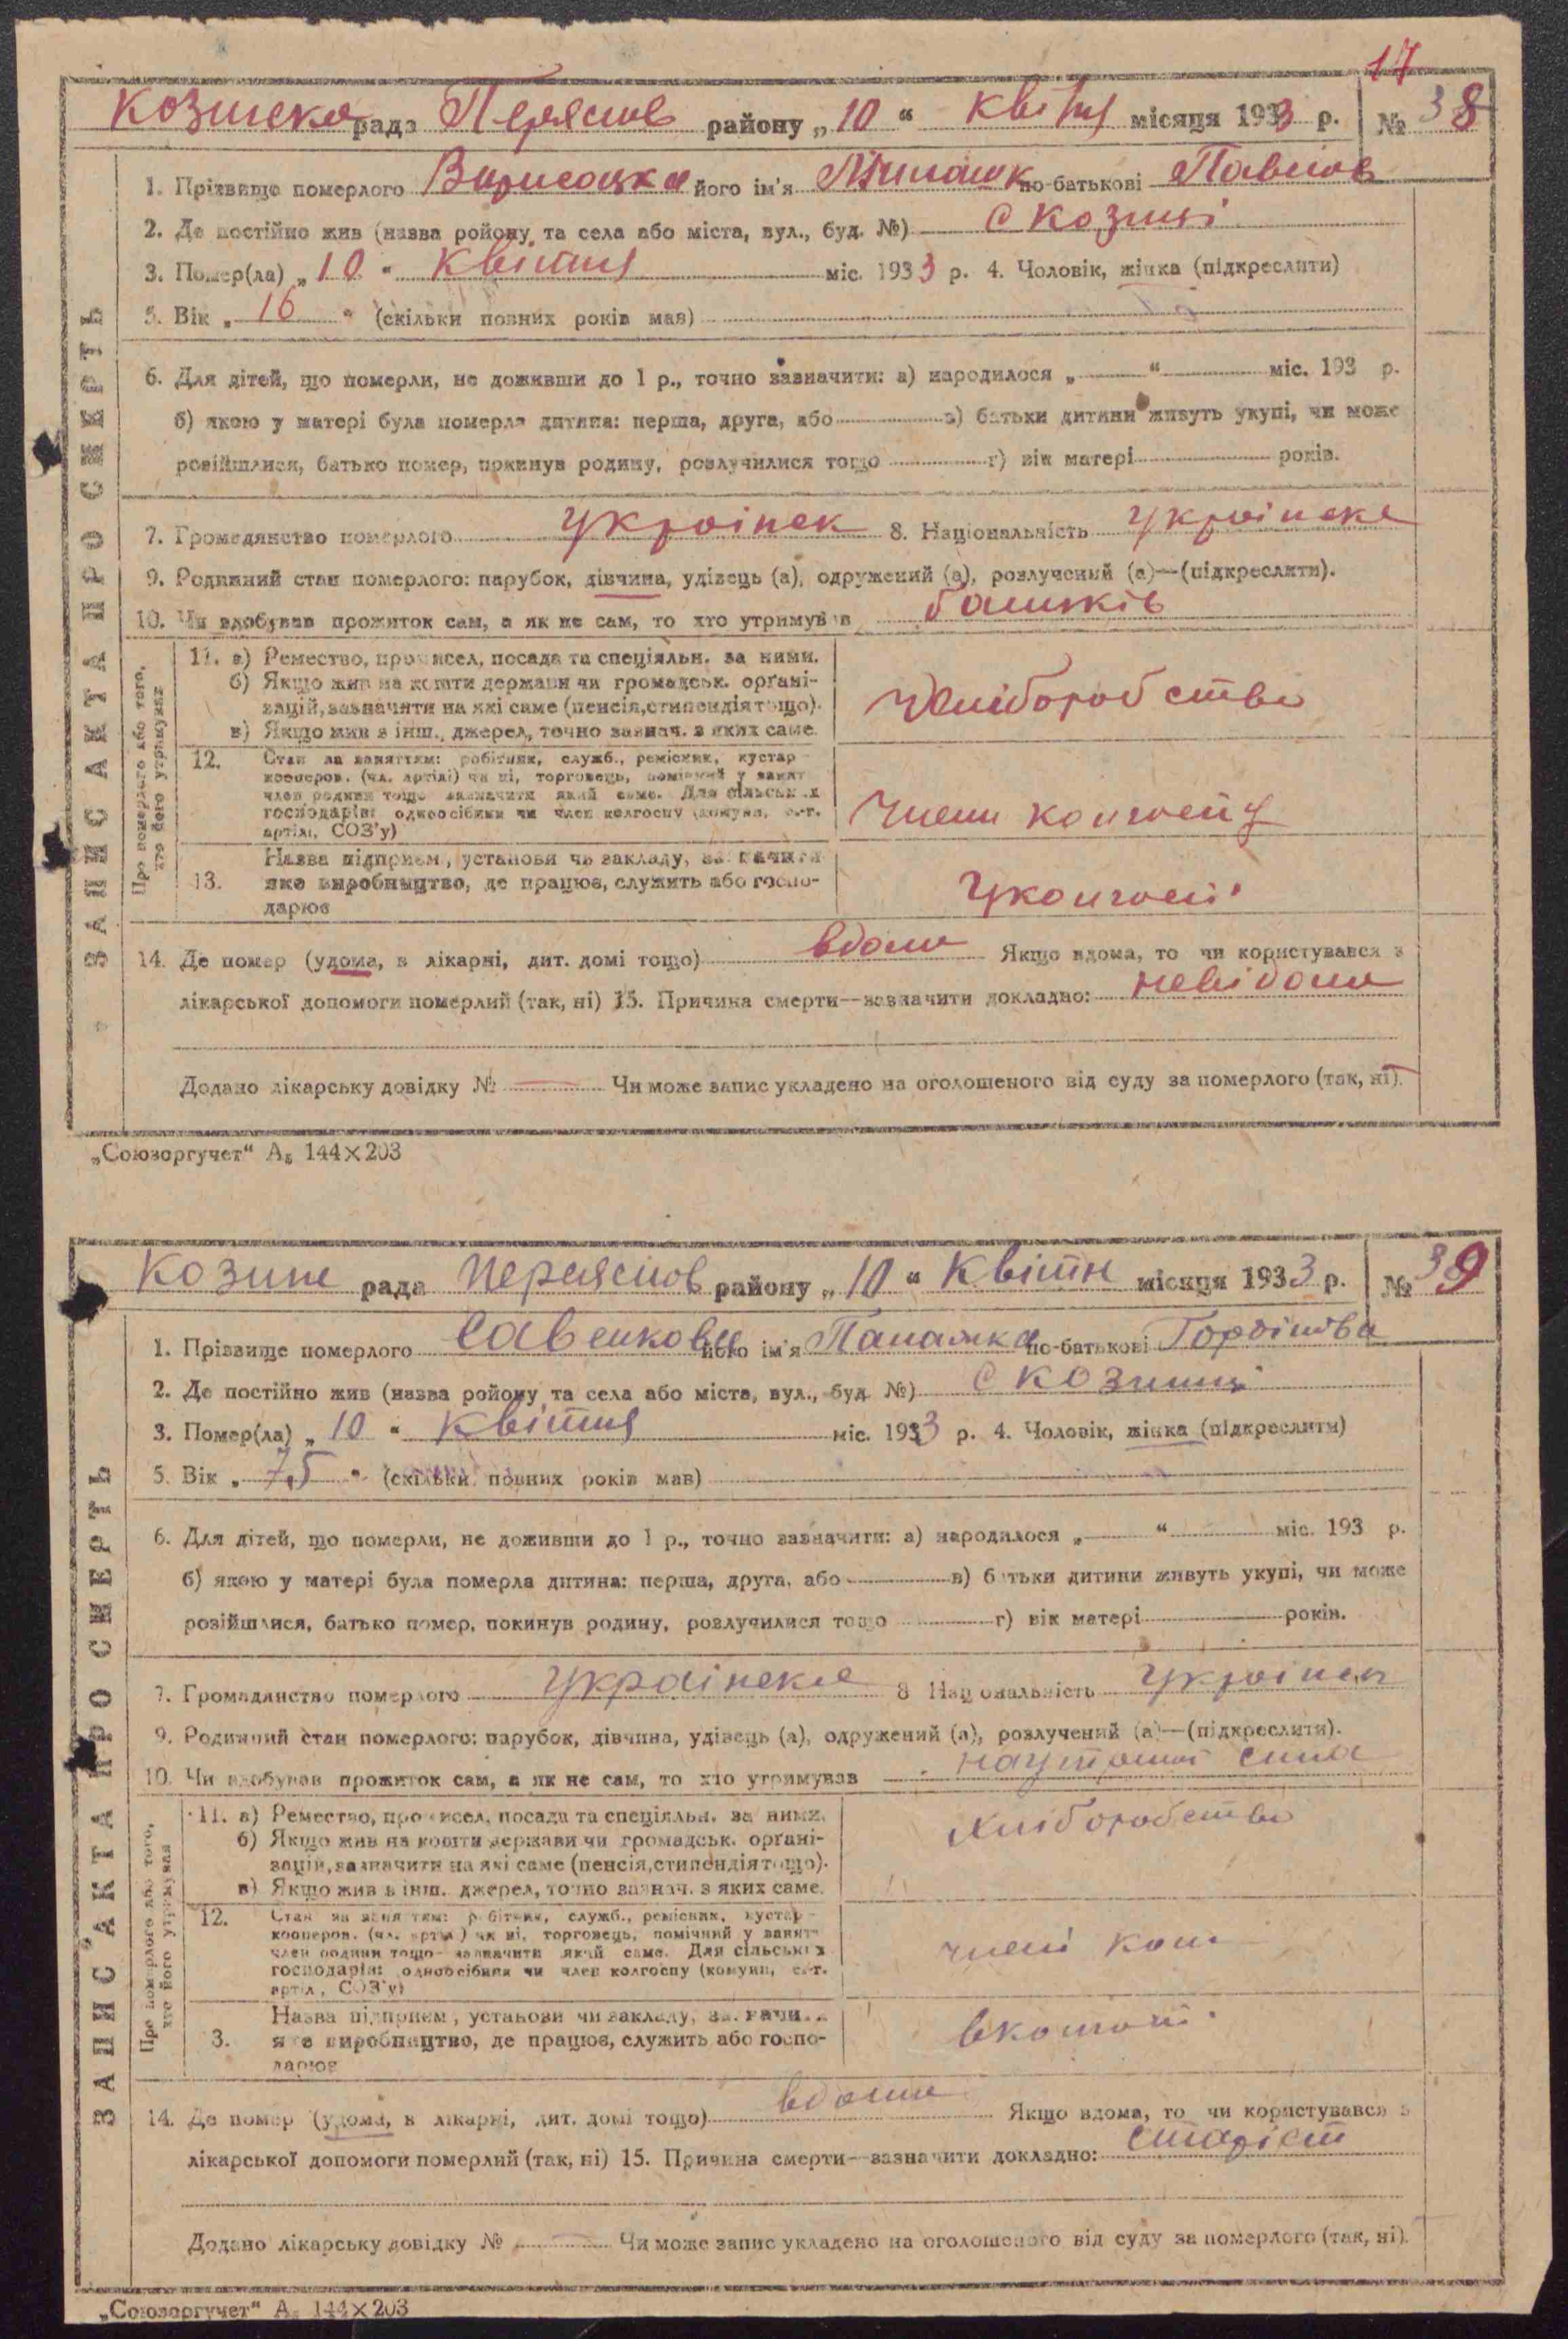 17
Козинска рада Переяслов району „10“ Квітня місяця 1933 р. № 38
1. Прізвище померлого його ім'я по-батькові Павлов
2. Де постійно жив (назва району та села або міста, вул., буд. №) с Козинці
3. Помер(ла) „10“ Квітня міс. 1933 р. 4. Чоловік, жінка (підкреслити)
5. Вік „16“ (скільки повних років мав)
6. Для дітей, що померли, не доживши до 1 р., точно зазначити: а) народилося „ “ міс. 193 р.
б) якою у матері була померла дитина: перша, друга, або в) батьки дитини живуть укупі, чи може
розійшлися, батько помер, покинув родину, розлучилися тощо г) вік матері років.
7. Громадянство померлого Українск 8. Національність Українска
9. Родинний стан померлого: парубок, дівчина, удівець (а), одружений (а), розлучений (а)—(підкреслити).
10. Чи здобував прожиток сам, а як не сам, то хто утримував батьків
ЗАПИС АКТА ПРО СМЕРТЬ
Про померлого або того, хто його утримував
11. а) Ремество, промисел, посада та спеціяльн. за ними.
б) Якщо жив на кошти держави чи громадськ. організацій, зазначити на які саме (пенсія, стипендія тощо).
в) Якщо жив з інш. джерел, точно зазнач. з яких саме.
Хліборобство
12. Стан за заняттям: робітник, служб., ремісник, кустар
кооперов. (чл. артілі) чи ні, торговець, помічний у занят.
член родини тощо зазначити який саме. Для сільських
господарів: одноосібник чи член колгоспу (комуни, с.-г.
артілі, СОЗ'у)
член
13. Назва підприєм., установи чи закладу, зазначити
яке виробництво, де працює, служить або госпо-
дарює
14. Де помер (удома, в лікарні, дит. домі тощо) вдома Якщо вдома, то чи користувався з
лікарської допомоги померлий (так, ні) 15. Причина смерти—зазначити докладно: невідома
Додано лікарську довідку № — Чи може запис укладено на оголошеного від суду за померлого (так, ні).
„Союзоргучет“ А₅ 144×203
Козине рада Переяслов району „10“ Квітн місяця 1933 р. № 39
1. Прізвище померлого Савенкова його ім'я по-батькові
2. Де постійно жив (назва району та села або міста, вул., буд. №) с Козинці
3. Помер(ла) „10“ Квітня міс. 1933 р. 4. Чоловік, жінка (підкреслити)
5. Вік „75“ (скільки повних років мав)
6. Для дітей, що померли, не доживши до 1 р., точно зазначити: а) народилося „ “ міс. 193 р.
б) якою у матері була померла дитина: перша, друга, або в) батьки дитини живуть укупі, чи може
розійшлися, батько помер, покинув родину, розлучилися тощо г) вік матері років.
7. Громадянство померлого Українска 8 Національність Українск
9. Родинний стан померлого: парубок, дівчина, удівець (а), одружений (а), розлучений (а)—(підкреслити).
10. Чи здобував прожиток сам, а як не сам, то хто утримував сина
ЗАПИС АКТА ПРО СМЕРТЬ
Про померлого або того, хто його утримував
11. а) Ремество, промисел, посада та спеціяльн. за ними.
б) Якщо жив на кошти держави чи громадськ. організацій, зазначити на які саме (пенсія, стипендія тощо).
в) Якщо жив з інш. джерел, точно зазнач. з яких саме.
Хліборобство
12. Стан за заняттям: робітник, служб., ремісник, кустар
кооперов. (чл. артілі) чи ні, торговець, помічний у занят.
член родини тощо зазначити який саме. Для сільських
господарів: одноосібник чи член колгоспу (комуни, с.-г.
артіл, СОЗ'у)
член
3. Назва підприєм., установи чи закладу, зазначити
яке виробництво, де працює, служить або госпо-
дарює
14. Де помер (удома, в лікарні, дит. домі тощо) вдома Якщо вдома, то чи користувався з
лікарської допомоги померлий (так, ні) 15. Причина смерти—зазначити докладно: старіст
Додано лікарську довідку № — Чи може запис укладено на оголошеного від суду за померлого (так, ні).
„Союзоргучет“ А₅ 144×203